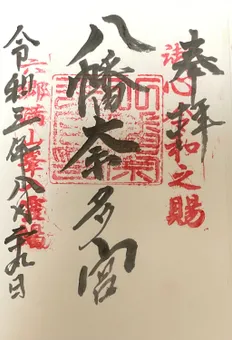 奉拝
心 和之賜
八幡奈多宮
六郷満山 霊場
令和 年八月廿九日